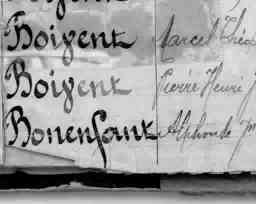 Boivent Marcel Théo
Boivent Pierre Henri J
Bonenfant Alphonse M